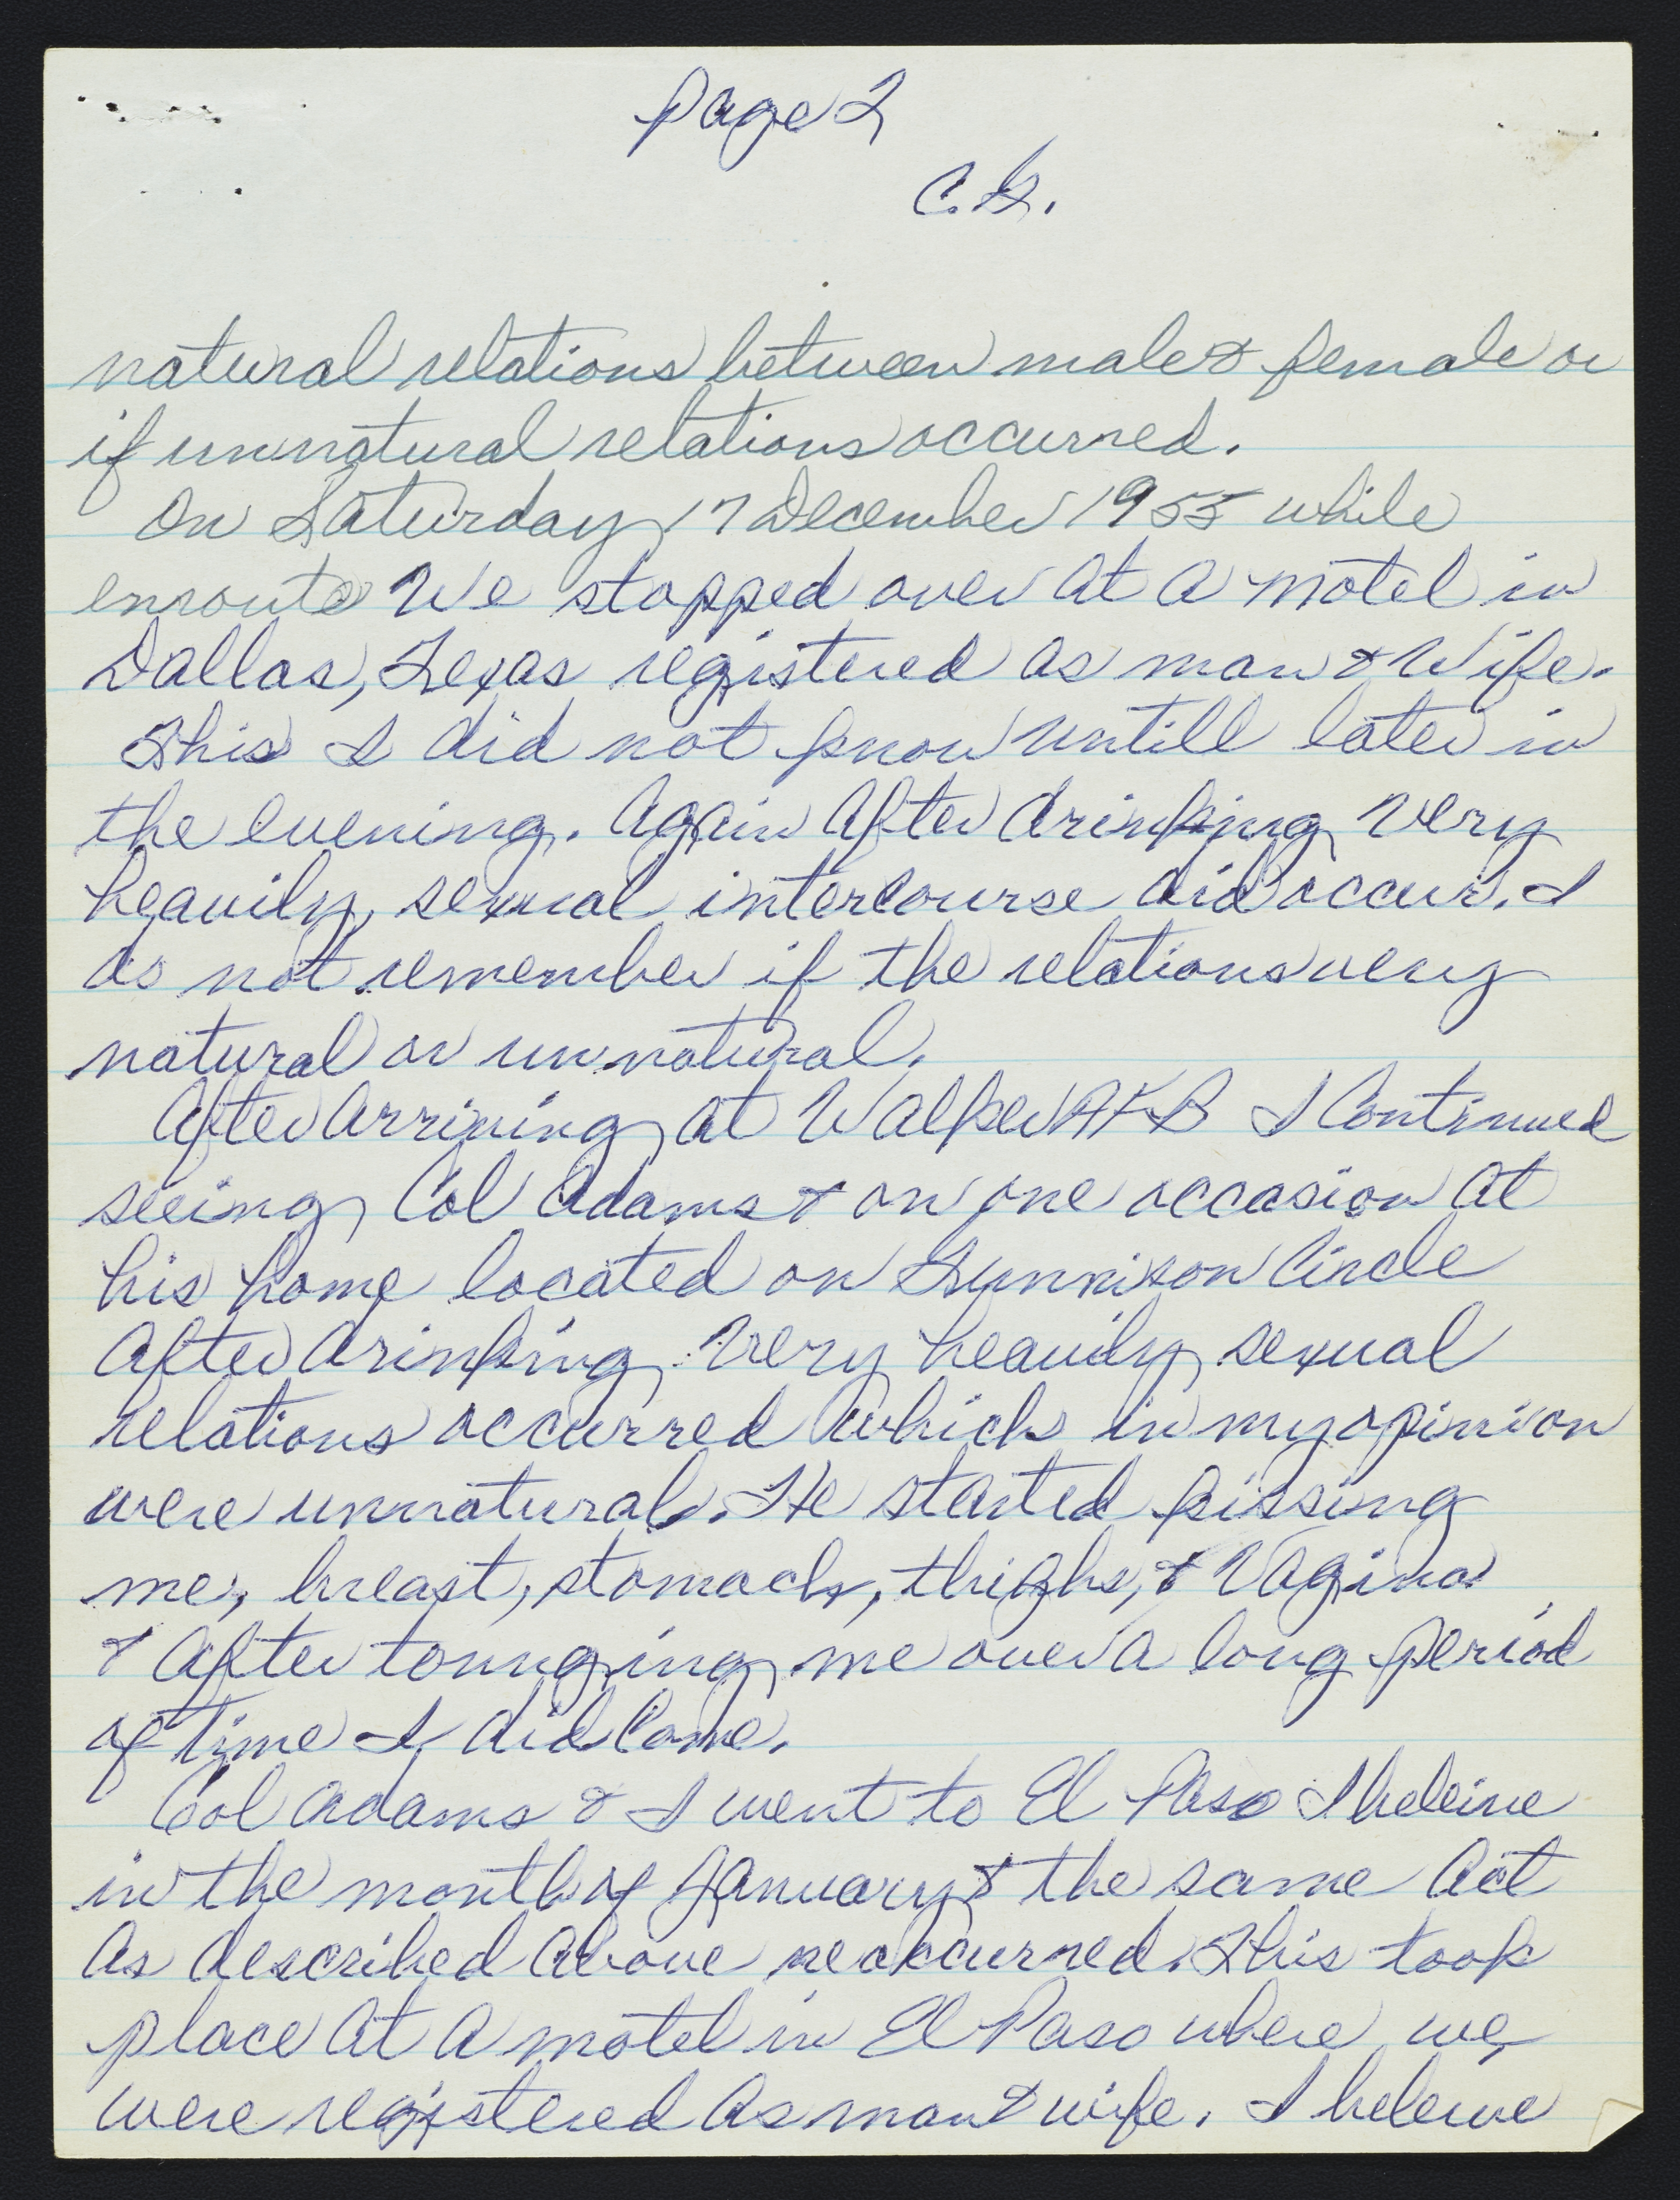 Page 2
C.G.
natural relations between male & female or
if unnatural relations occurred.
On Saturday 17 December 1955 while
enroute We stopped over at a motel in
Dallas, Texas registered as man & Wife.
This I did not know untill later in
the evening. Again After drinking very
heavily, sexual intercourse did occur. I
do not remember if the relations very
natural or unnatural.
After Arriving at Walker AFB I Continued
seeing Col Adams & on one occasion at
his home located on Gunnison Circle
After drinking very heavily sexual
relations occurred which in my opinion
were unnatural. He started kissing
me, breast, stomach, thighs, & Vagina
& After tounging me over a long period
of time I did Come.
Col Adams & I went to El Paso I beleive
in the month of January & the same Act
As described above reoccurred. This took
place At A motel in El Paso where we
were registered As man & wife. I beleive